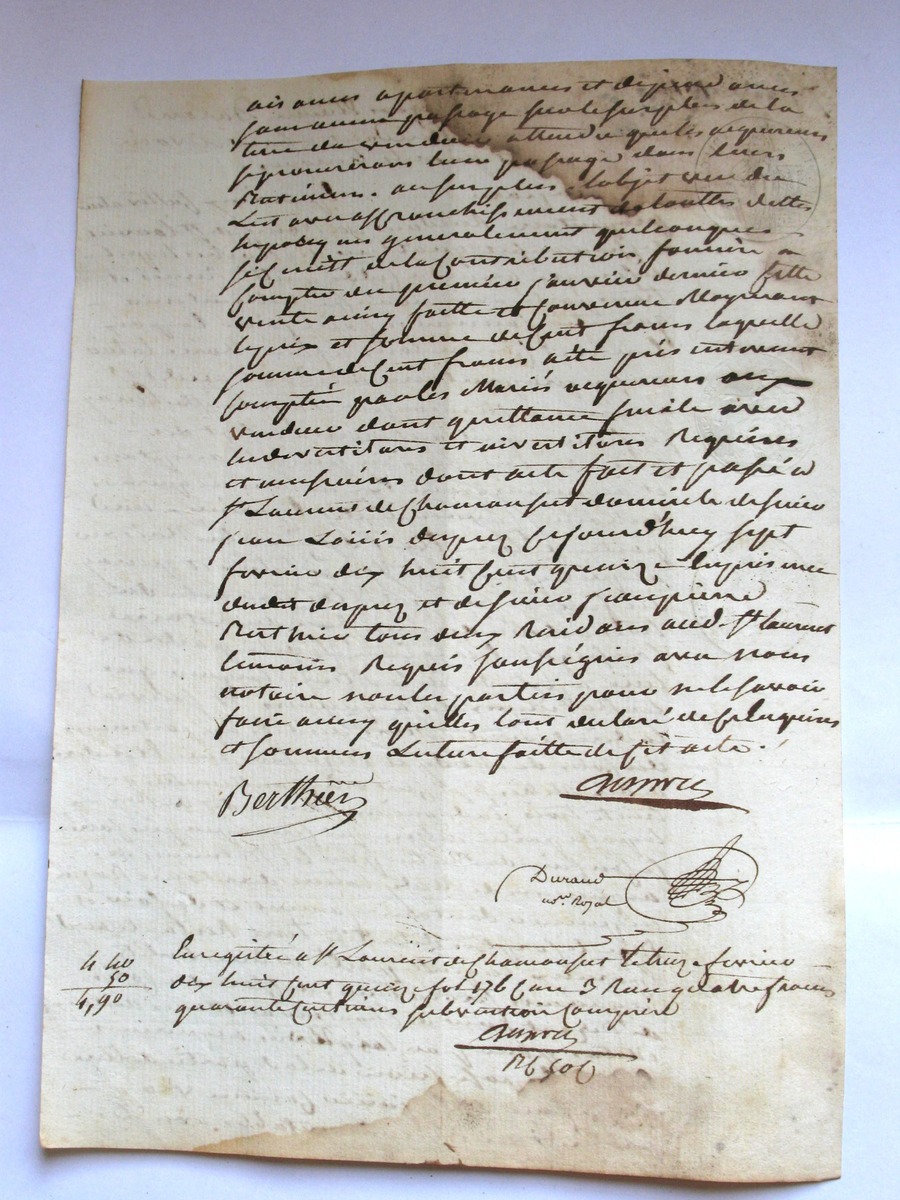 ais ances apartenances et dependances
sans aucun passage sur le surplus de la
terre du vendeur attendu que les acquereurs
se prenerons leur passage dans leurs
au surplus l'objet vendu
L'est avec affranchissement de touttes dettes
hypoteques generalement quelconques
si ce n'est de la Contribution fonciere a
Compter du premier janvier dernier cette
vente ainsy faitte et convenue Moyenant
le prix et somme de Cent francs laquelle
somme de Cent francs a été présentement
Comptée par les Mariés acquereurs aux
vendeur dont quittance finale avec
les devestitures et investitures Requises
et necessaires dont acte fait et passé a
St Laurent de Chamousset domicile de sieur
jean Louis dupuy Cejourd'huy sept
fevrier dix huit Cent quinze En présence
dudit dupuy et de sieur jean pierre
Berthier tous deux Residans aud. St Laurent
temoins Requis soussignés avec nous
notaire non les parties pour ne le savoir
faire ainsy qu'elles l'ont declaré de ce Enquises
et sommées Lecture faitte de cet acte.
Berthier
Dupuy
Durand
nre. Royal
4 40
50
4,90
Enregistré a St Laurent de Chamousset le treize fevrier
dix huit Cent quinze fol 176 Case 3 Reçu quatre francs
quarante Centimes subvention Comprise
Dupuy